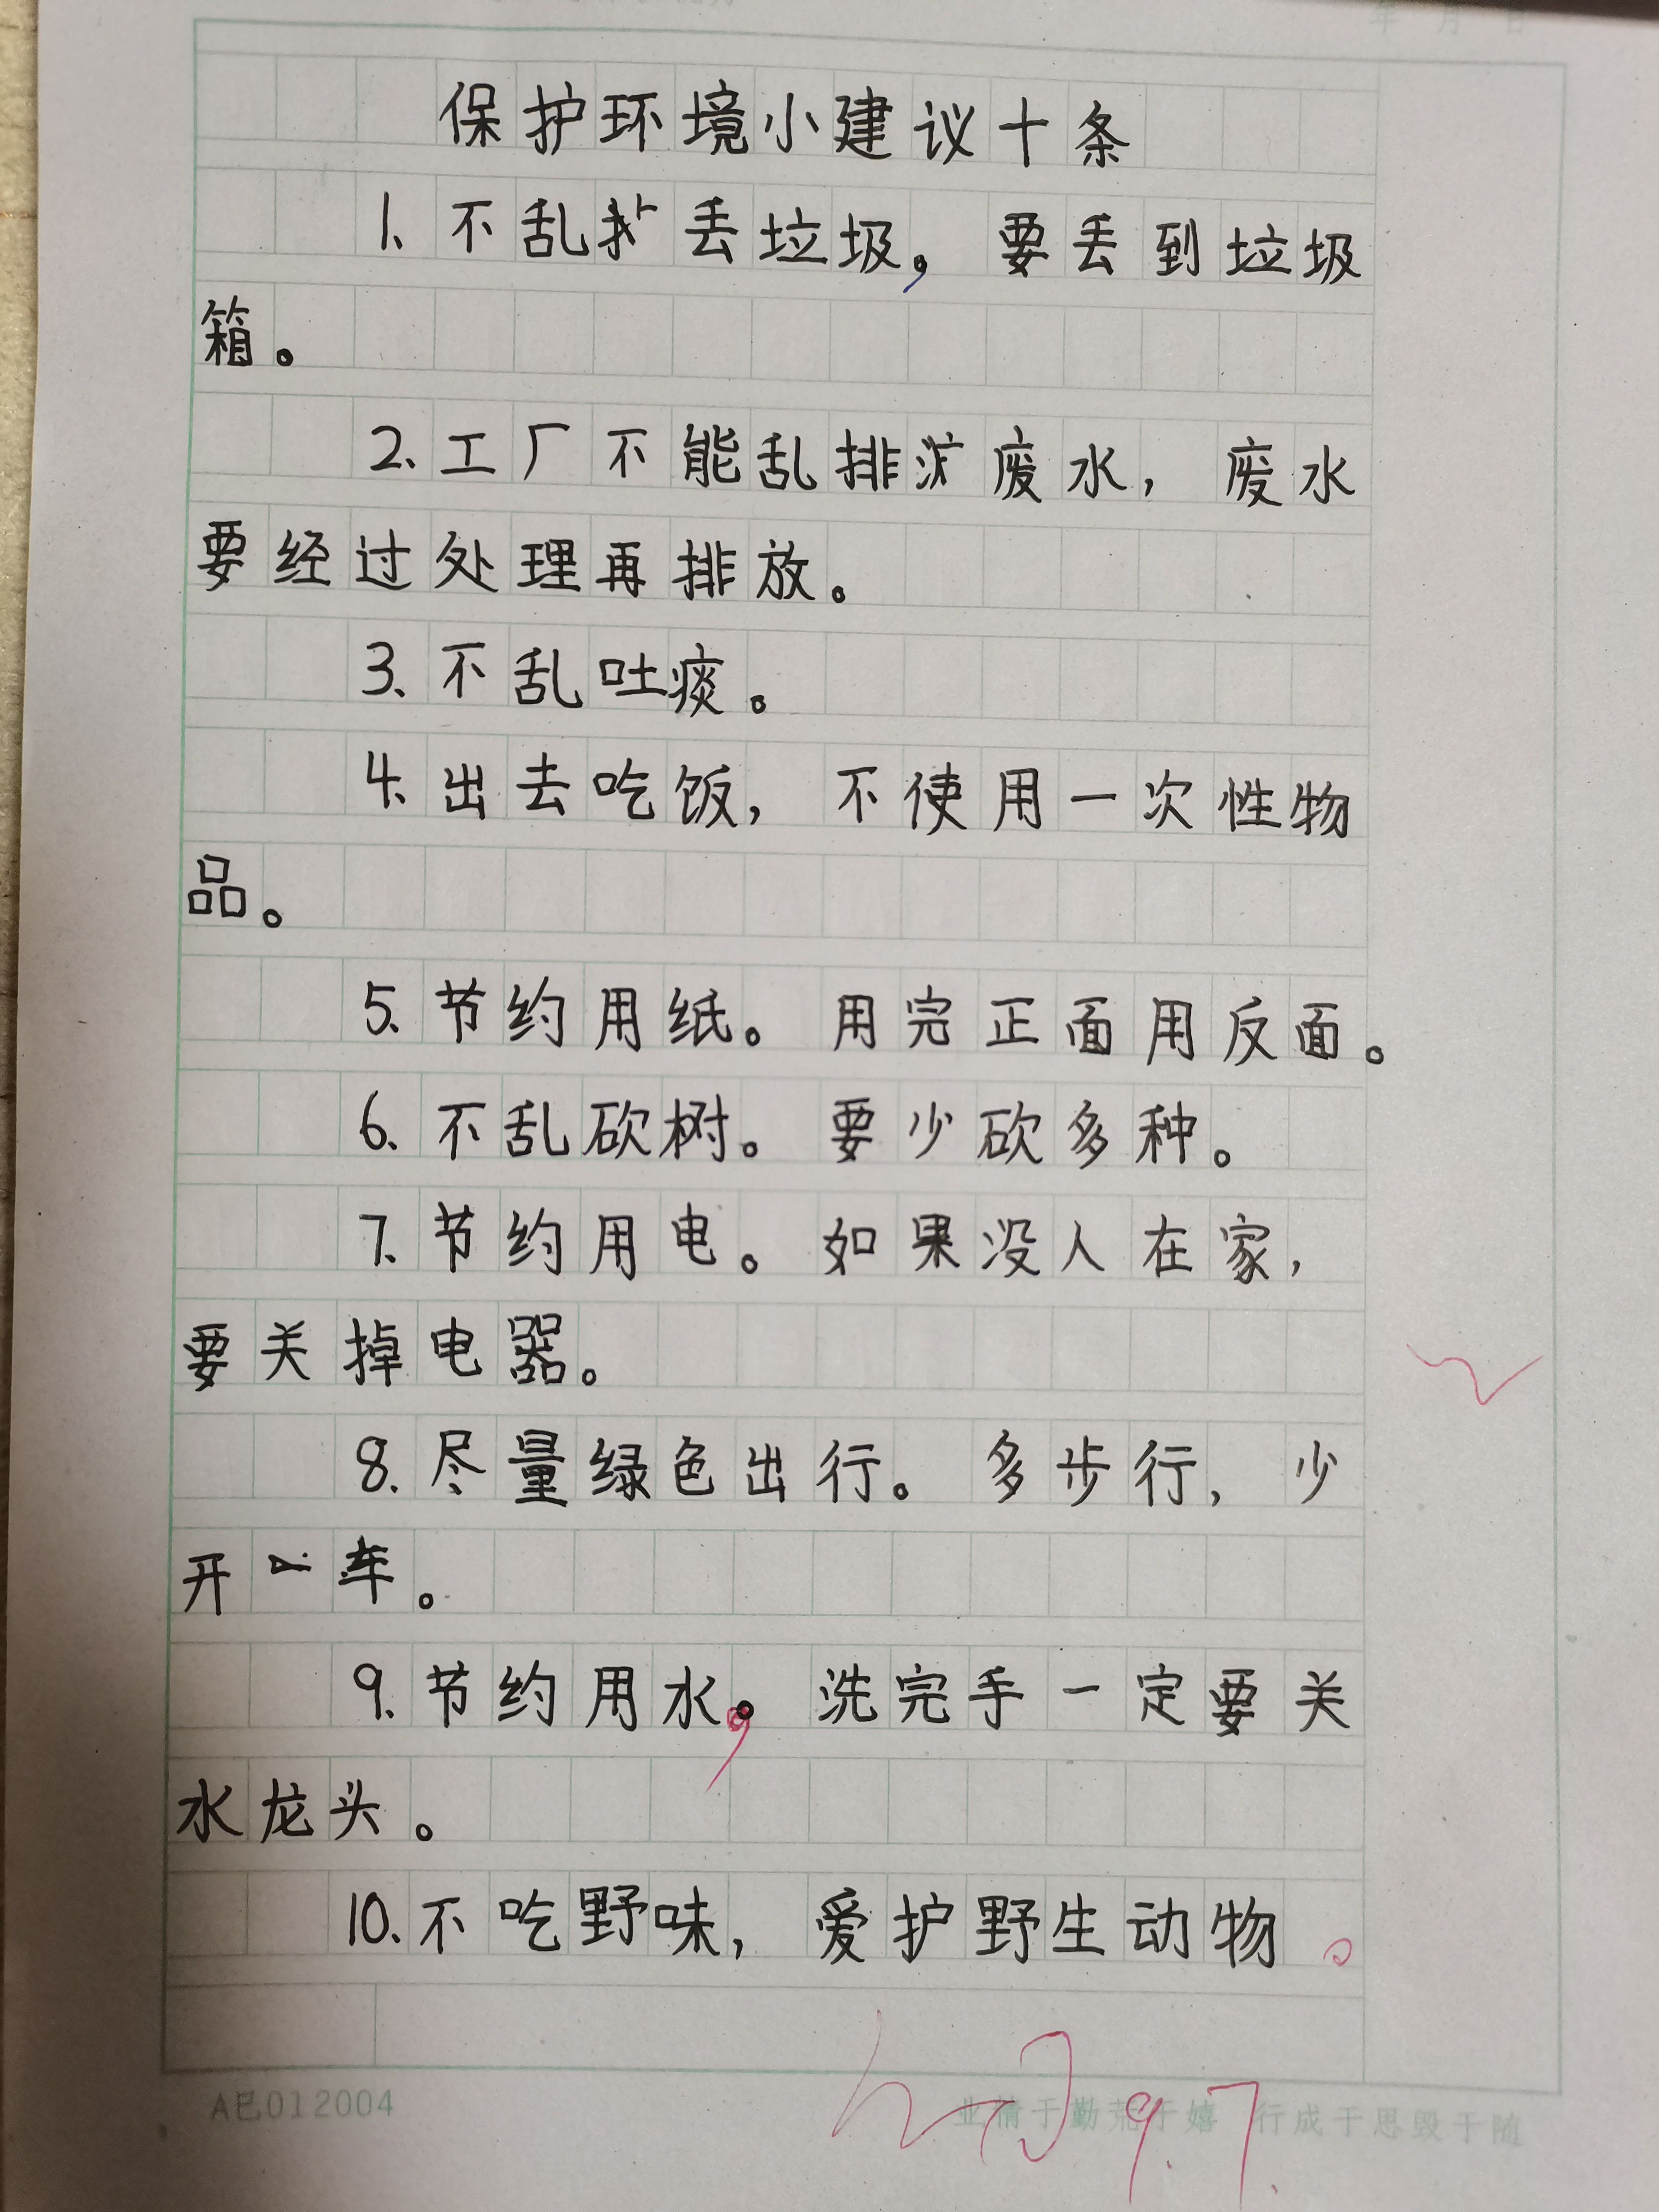 保护环境小建议十条
1、不乱扌丢垃圾，要丢到垃圾
箱。
2、工厂不能乱排废水，废水
要经过处理再排放。
3、不乱吐痰。
4、出去吃饭，不使用一次性物
品。
5、节约用纸。用完正面用反面。
6、不乱砍树。要少砍多种。
7、节约用电。如果没人在家，
要关掉电器。
8、尽量绿色出行。多步行，少
开一车。
9、节约用水，洗完手一定要关
水龙头。
10、不吃野味，爱护野生动物。
9.7.
AE012004
业精于勤荒于嬉 行成于思毁于随